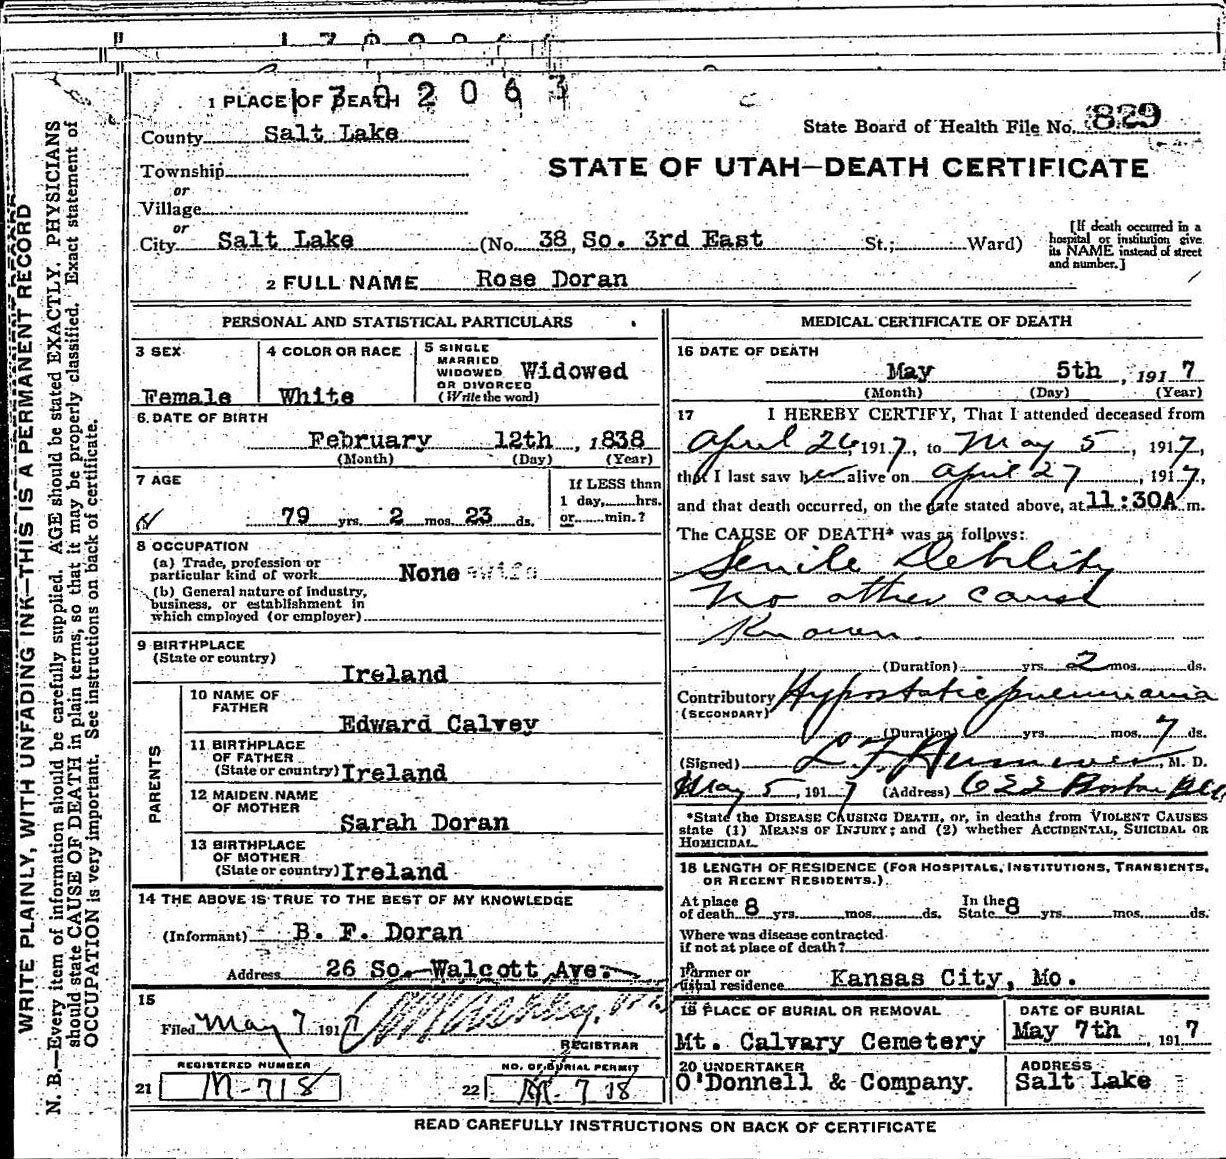 1702063
1 PLACE OF DEATH
County Salt Lake
State Board of Health File No. 829
Township
STATE OF UTAH—DEATH CERTIFICATE
or
Village
or
City Salt Lake (No. 38 So. 3rd East St.; Ward)
[If death occurred in a hospital or institution give its NAME instead of street and number.]
2 FULL NAME Rose Doran
PERSONAL AND STATISTICAL PARTICULARS
3 SEX
Female
4 COLOR OR RACE
White
5 SINGLE
MARRIED
WIDOWED
OR DIVORCED
(Write the word)
Widowed
6. DATE OF BIRTH
February 12th, 1838
(Month) (Day) (Year)
7 AGE
79 yrs. 2 mos. 23 ds.
If LESS than
1 day, hrs.
or min.?
8 OCCUPATION
(a) Trade, profession or
particular kind of work None
(b) General nature of industry,
business, or establishment in
which employed (or employer)
9 BIRTHPLACE
(State or country)
Ireland
PARENTS
10 NAME OF
FATHER
Edward Calvey
11 BIRTHPLACE
OF FATHER
(State or country) Ireland
12 MAIDEN NAME
OF MOTHER
Sarah Doran
13 BIRTHPLACE
OF MOTHER
(State or country) Ireland
14 THE ABOVE IS TRUE TO THE BEST OF MY KNOWLEDGE
(Informant) B. F. Doran
Address 26 So. Walcott Ave.
15
Filed May 7 1917
REGISTRAR
REGISTERED NUMBER
21 M-718
NO. OF BURIAL PERMIT
22 M. 718
MEDICAL CERTIFICATE OF DEATH
16 DATE OF DEATH
May 5th, 1917
(Month) (Day) (Year)
17 I HEREBY CERTIFY, That I attended deceased from
April 26, 1917, to May 5, 1917,
that I last saw her alive on April 27, 1917,
and that death occurred, on the date stated above, at 11:30A m.
The CAUSE OF DEATH* was as follows:
Senile Debility
No other cause
Known.
(Duration) yrs. 2 mos. ds.
Contributory Hypostatic pneumonia
(SECONDARY)
(Duration) yrs. mos. 7 ds.
(Signed) M. D.
May 5, 1917 (Address) 622 Boston Bld
*State the DISEASE CAUSING DEATH, or, in deaths from VIOLENT CAUSES
state (1) MEANS OF INJURY; and (2) whether ACCIDENTAL, SUICIDAL OR
HOMICIDAL.
18 LENGTH OF RESIDENCE (FOR HOSPITALS, INSTITUTIONS, TRANSIENTS,
OR RECENT RESIDENTS.)
At place
of death 8 yrs. mos. ds.
In the
State 8 yrs. mos. ds.
Where was disease contracted
if not at place of death?
Former or
usual residence Kansas City, Mo.
19 PLACE OF BURIAL OR REMOVAL
Mt. Calvary Cemetery
DATE OF BURIAL
May 7th, 1917
20 UNDERTAKER
O'Donnell & Company.
ADDRESS
Salt Lake
READ CAREFULLY INSTRUCTIONS ON BACK OF CERTIFICATE
WRITE PLAINLY, WITH UNFADING INK—THIS IS A PERMANENT RECORD
N. B.—Every item of information should be carefully supplied. AGE should be stated EXACTLY. PHYSICIANS
should state CAUSE OF DEATH in plain terms, so that it may be properly classified. Exact statement of
OCCUPATION is very important. See instructions on back of certificate.